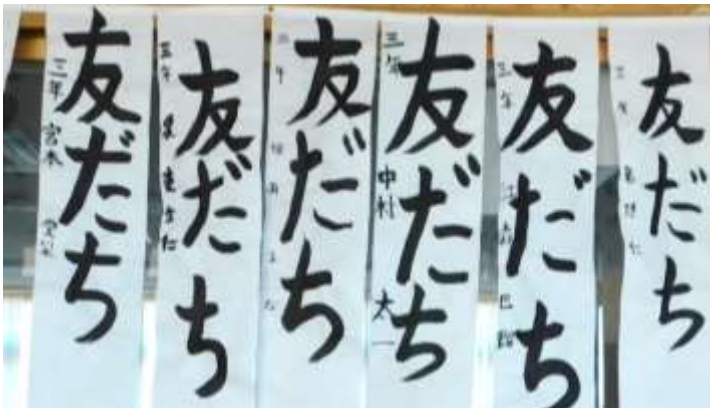 友だち
三年 宮本
友だち
三年
友だち
三年
友だち
三年 中村 太一
友だち
三年
友だち
三年